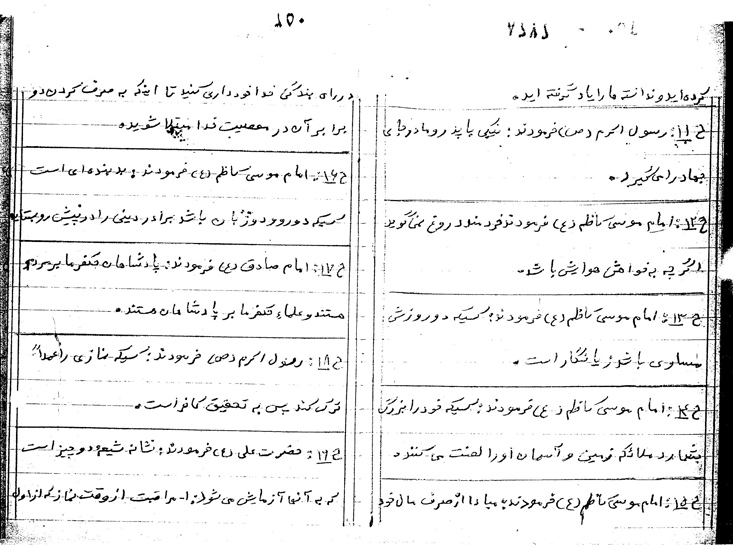 ۱۵۰
کرده اید و ندانسته ها را یاد گرفته اید.
ح۱۱: رسول اکرم (ص) فرمودند: نیکی با پدر و مادر جای
جهاد را می گیرد.
ح۱۲: امام موسی کاظم (ع) فرمودند خردمند دروغ نمی گوید
اگر چه به خواهش هوایش باشد.
ح۱۳: امام موسی کاظم (ع) فرمودند: کسیکه دو روزش
مساوی باشد زیانکار است.
ح۱۴: امام موسی کاظم (ع) فرمودند: کسیکه خود را بزرگ
بشمارد ملائکه زمین و آسمان او را لعنت می کنند.
ح۱۵: امام موسی کاظم (ع) فرمودند: مبادا از صرف مال خود
در راه بندگی خدا خودداری کنید تا اینکه به صرف کردن دو
برابر آن در معصیت خدا مبتلا شوید.
ح۱۶: امام موسی کاظم (ع) فرمودند: بد بنده ای است
کسیکه دورو و دوزبان باشد برادر دینی را در پیش رو بستاید
ح۱۷: امام صادق (ع) فرمودند: پادشاهان حکمفرما بر مردم
هستند و علماء حکمفرما بر پادشاهان هستند.
ح۱۸: رسول اکرم (ص) فرمودند: کسیکه نمازی را عمداً
ترک کند پس به تحقیق کافر است.
ح۱۹: حضرت علی (ع) فرمودند: نشانه شیعه دو چیز است
که به آنها آزمایش می شوند: ۱- مراقبت از وقت نماز که از اول